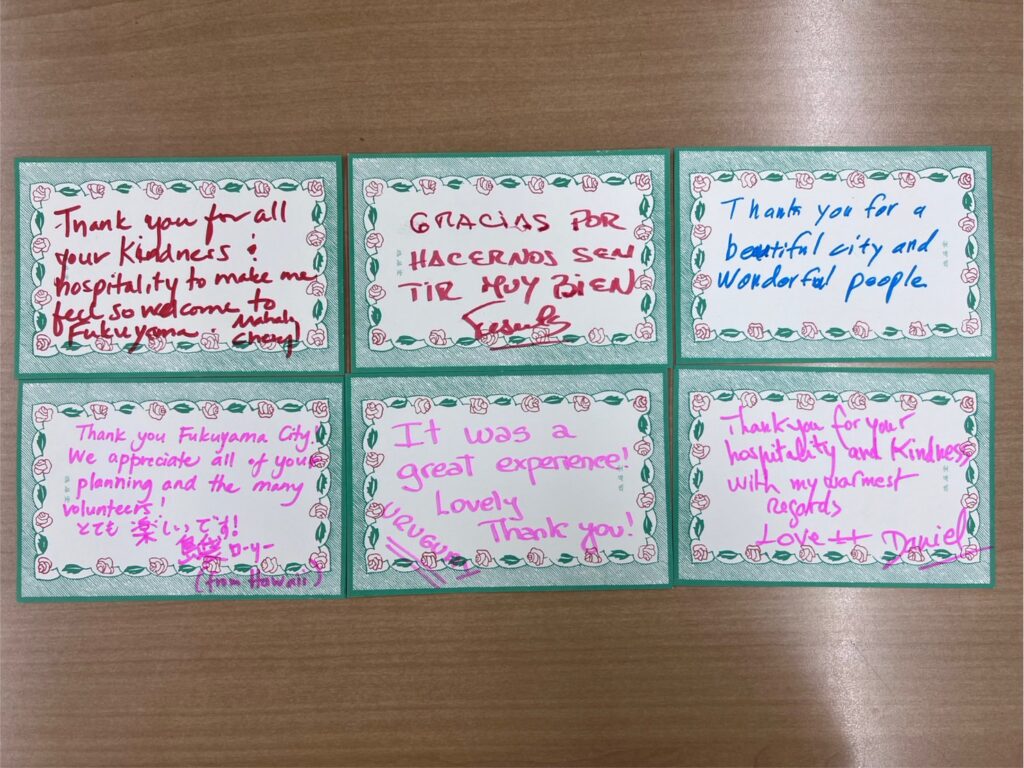 Thank you for all
your Kindness &
hospitality to make me
feel so welcome to
Fukuyama.
Mahalo
Cheryl
GRACIAS POR
HACERNOS SEN
TIR MUY BIEN
Thank you for a
beautiful city and
Wonderful people
Thank you Fukuyama City!
We appreciate all of your
planning and the many
volunteers!
とても楽しいです!
ローリー
(from Hawaii)
It was a
great experience!
Lovely
Thank you!
URUGUAY
Thank you for your
hospitality and Kindness
with my warmest
regards
Love
Daniel